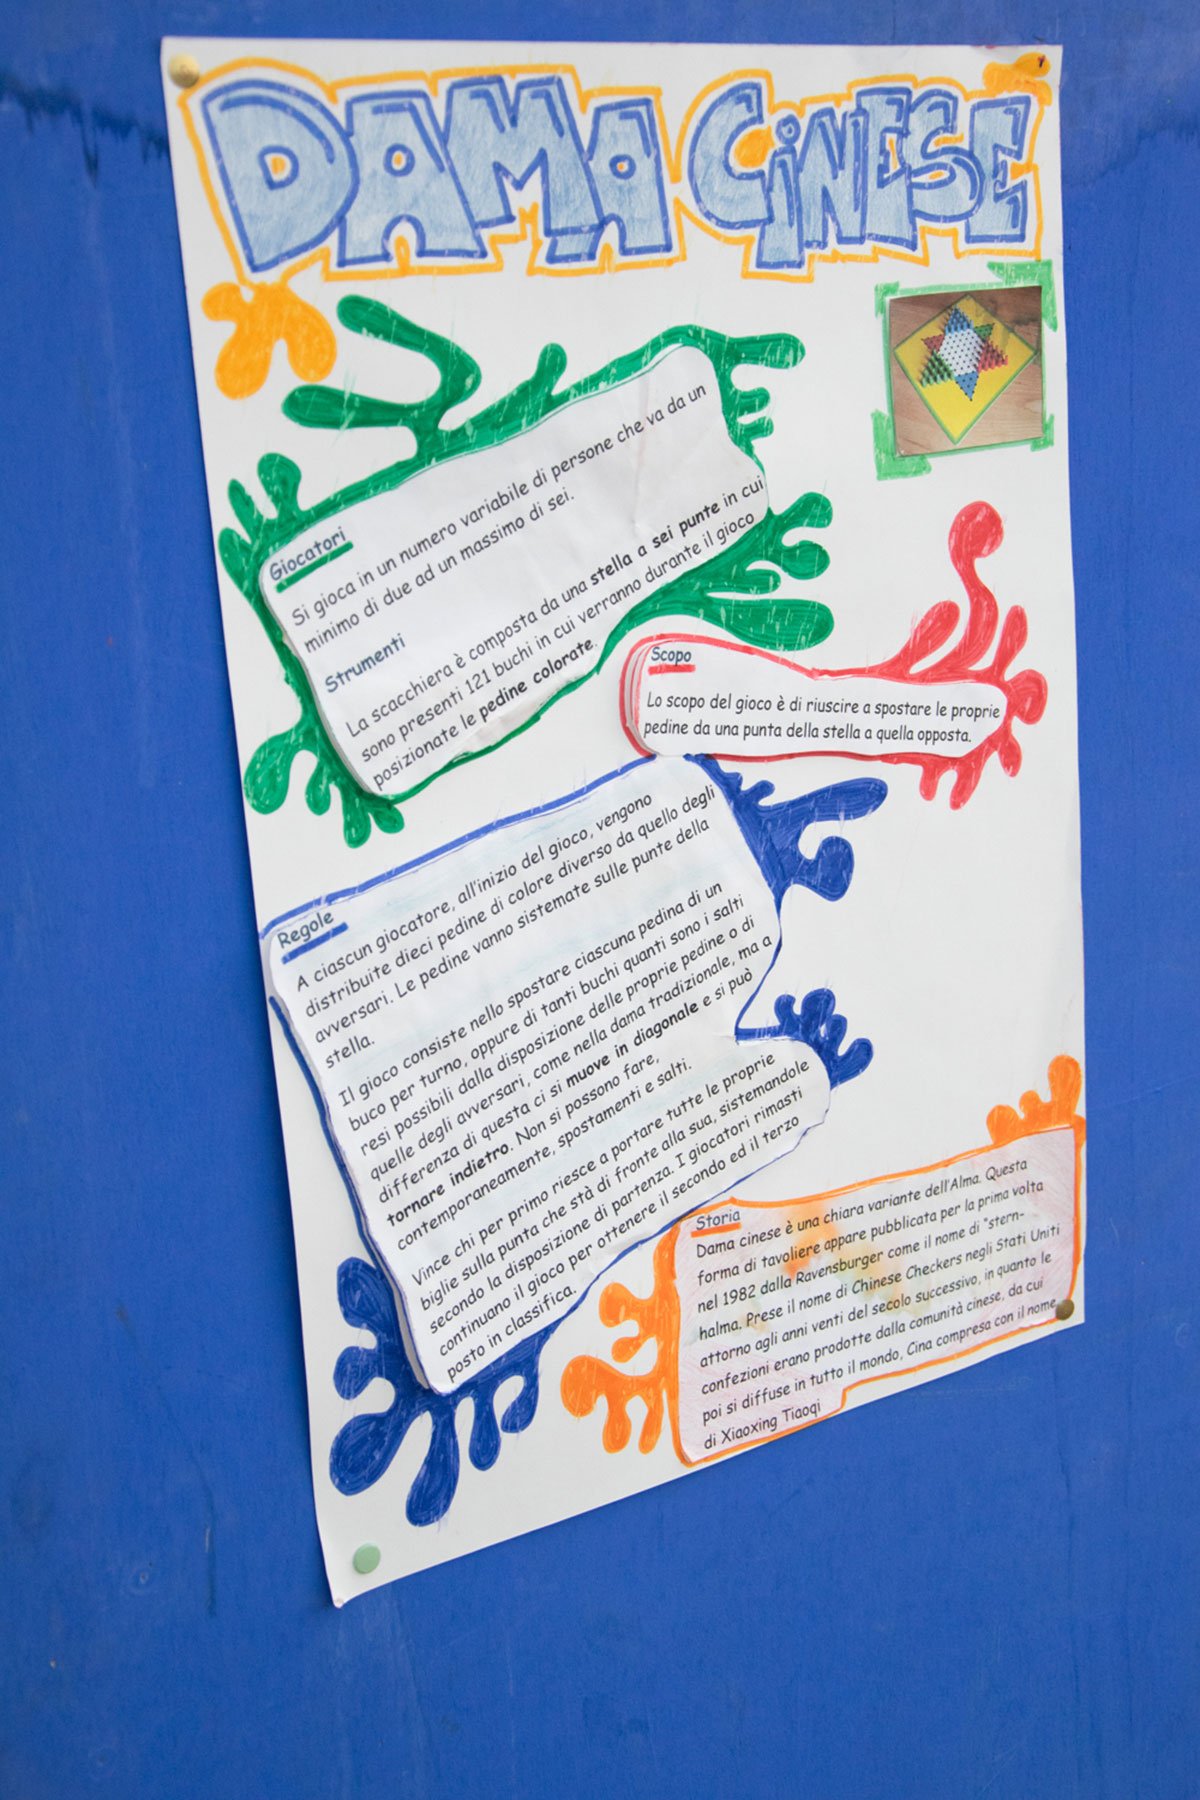 DAMA CINESE
Giocatori
Si gioca in un numero variabile di persone che va da un
minimo di due ad un massimo di sei.
Strumenti
La scacchiera è composta da una stella a sei punte in cui
sono presenti 121 buchi in cui verranno durante il gioco
posizionate le pedine colorate.
Scopo
Lo scopo del gioco è di riuscire a spostare le proprie
pedine da una punta della stella a quella opposta.
Regole
A ciascun giocatore, all'inizio del gioco, vengono
distribuite dieci pedine di colore diverso da quello degli
avversari. Le pedine vanno sistemate sulle punte della
stella.
Il gioco consiste nello spostare ciascuna pedina di un
buco per turno, oppure di tanti buchi quanti sono i salti
resi possibili dalla disposizione delle proprie pedine o di
quelle degli avversari, come nella dama tradizionale, ma a
differenza di questa ci si muove in diagonale e si può
tornare indietro. Non si possono fare,
contemporaneamente, spostamenti e salti.
Vince chi per primo riesce a portare tutte le proprie
biglie sulla punta che stà di fronte alla sua, sistemandole
secondo la disposizione di partenza. I giocatori rimasti
continuano il gioco per ottenere il secondo ed il terzo
posto in classifica.
Storia
Dama cinese è una chiara variante dell'Alma. Questa
forma di tavoliere appare pubblicata per la prima volta
nel 1982 dalla Ravensburger come il nome di "stern-
halma. Prese il nome di Chinese Checkers negli Stati Uniti
attorno agli anni venti del secolo successivo, in quanto le
confezioni erano prodotte dalla comunità cinese, da cui
poi si diffuse in tutto il mondo, Cina compresa con il nome
di Xiaoxing Tiaoqi